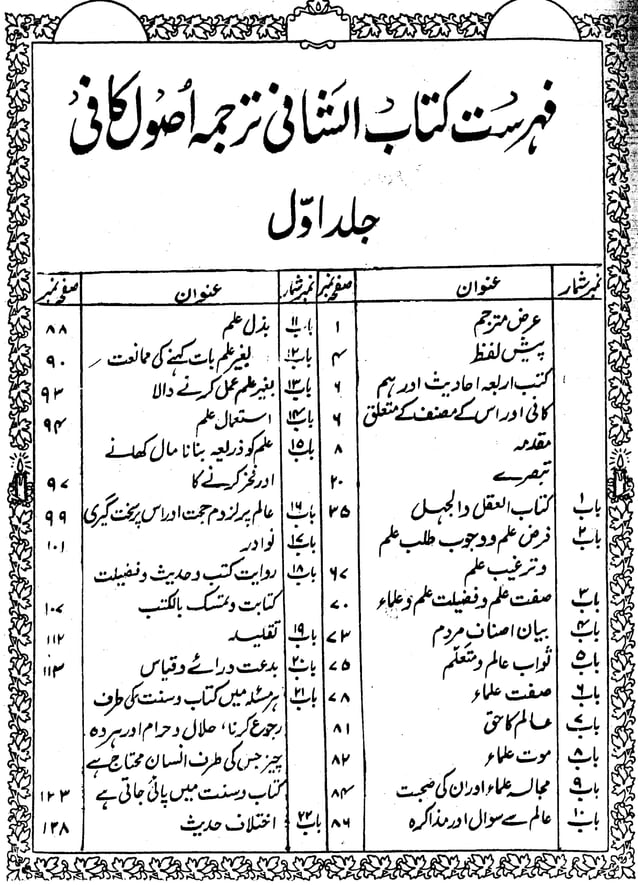 فہرست کتاب الشافی ترجمہ اصول کافی
جلد اوّل
نمبر شمار عنوان صفحہ نمبر
عرض مترجم ۱
پیش لفظ ۴
کتب اربعہ احادیث اور ہم ۶
کافی اور اس کے مصنف کے متعلق ۶
مقدمہ ۸
تبصرے ۲۰
باب ۱ کتاب العقل والجہل ۳۵
باب ۲ فرض علم و وجوب طلب علم
و ترغیب علم ۶۷
باب ۳ صفت علم و فضیلت علم و علماء ۷۰
باب ۴ بیان اصناف مردم ۷۳
باب ۵ ثواب عالم و متعلّم ۷۵
باب ۶ صفت علماء ۷۸
باب ۷ عالم کا حق ۸۱
باب ۸ موت علماء ۸۲
باب ۹ مجالسہ علماء اور ان کی صحبت ۸۴
باب ۱۰ عالم سے سوال اور مذاکرہ ۸۶
نمبر شمار عنوان صفحہ نمبر
باب ۱۱ بذل علم ۸۸
باب ۱۲ بغیر علم بات کہنے کی ممانعت ۹۰
باب ۱۳ بغیر علم عمل کرنے والا ۹۳
باب ۱۴ استعمال علم ۹۴
باب ۱۵ علم کو ذریعہ بنانا مال کھانے
اور فخر کرنے کا ۹۷
باب ۱۶ عالم پر لزوم حجت اور اس پر سخت گیری ۹۹
باب ۱۷ نوادر ۱۰۱
باب ۱۸ روایت کتب و حدیث و فضیلت
کتابت و تمسک بالکتب ۱۰۷
باب ۱۹ تقلید ۱۱۲
باب ۲۰ بدعت و رائے و قیاس ۱۱۳
باب ۲۱ ہر مسئلہ میں کتاب و سنت کی طرف
رجوع کرنا، حلال و حرام اور ہر وہ
چیز جس کی طرف انسان محتاج ہے
کتاب و سنت میں پائی جاتی ہے ۱۲۳
باب ۲۲ اختلاف حدیث ۱۲۸